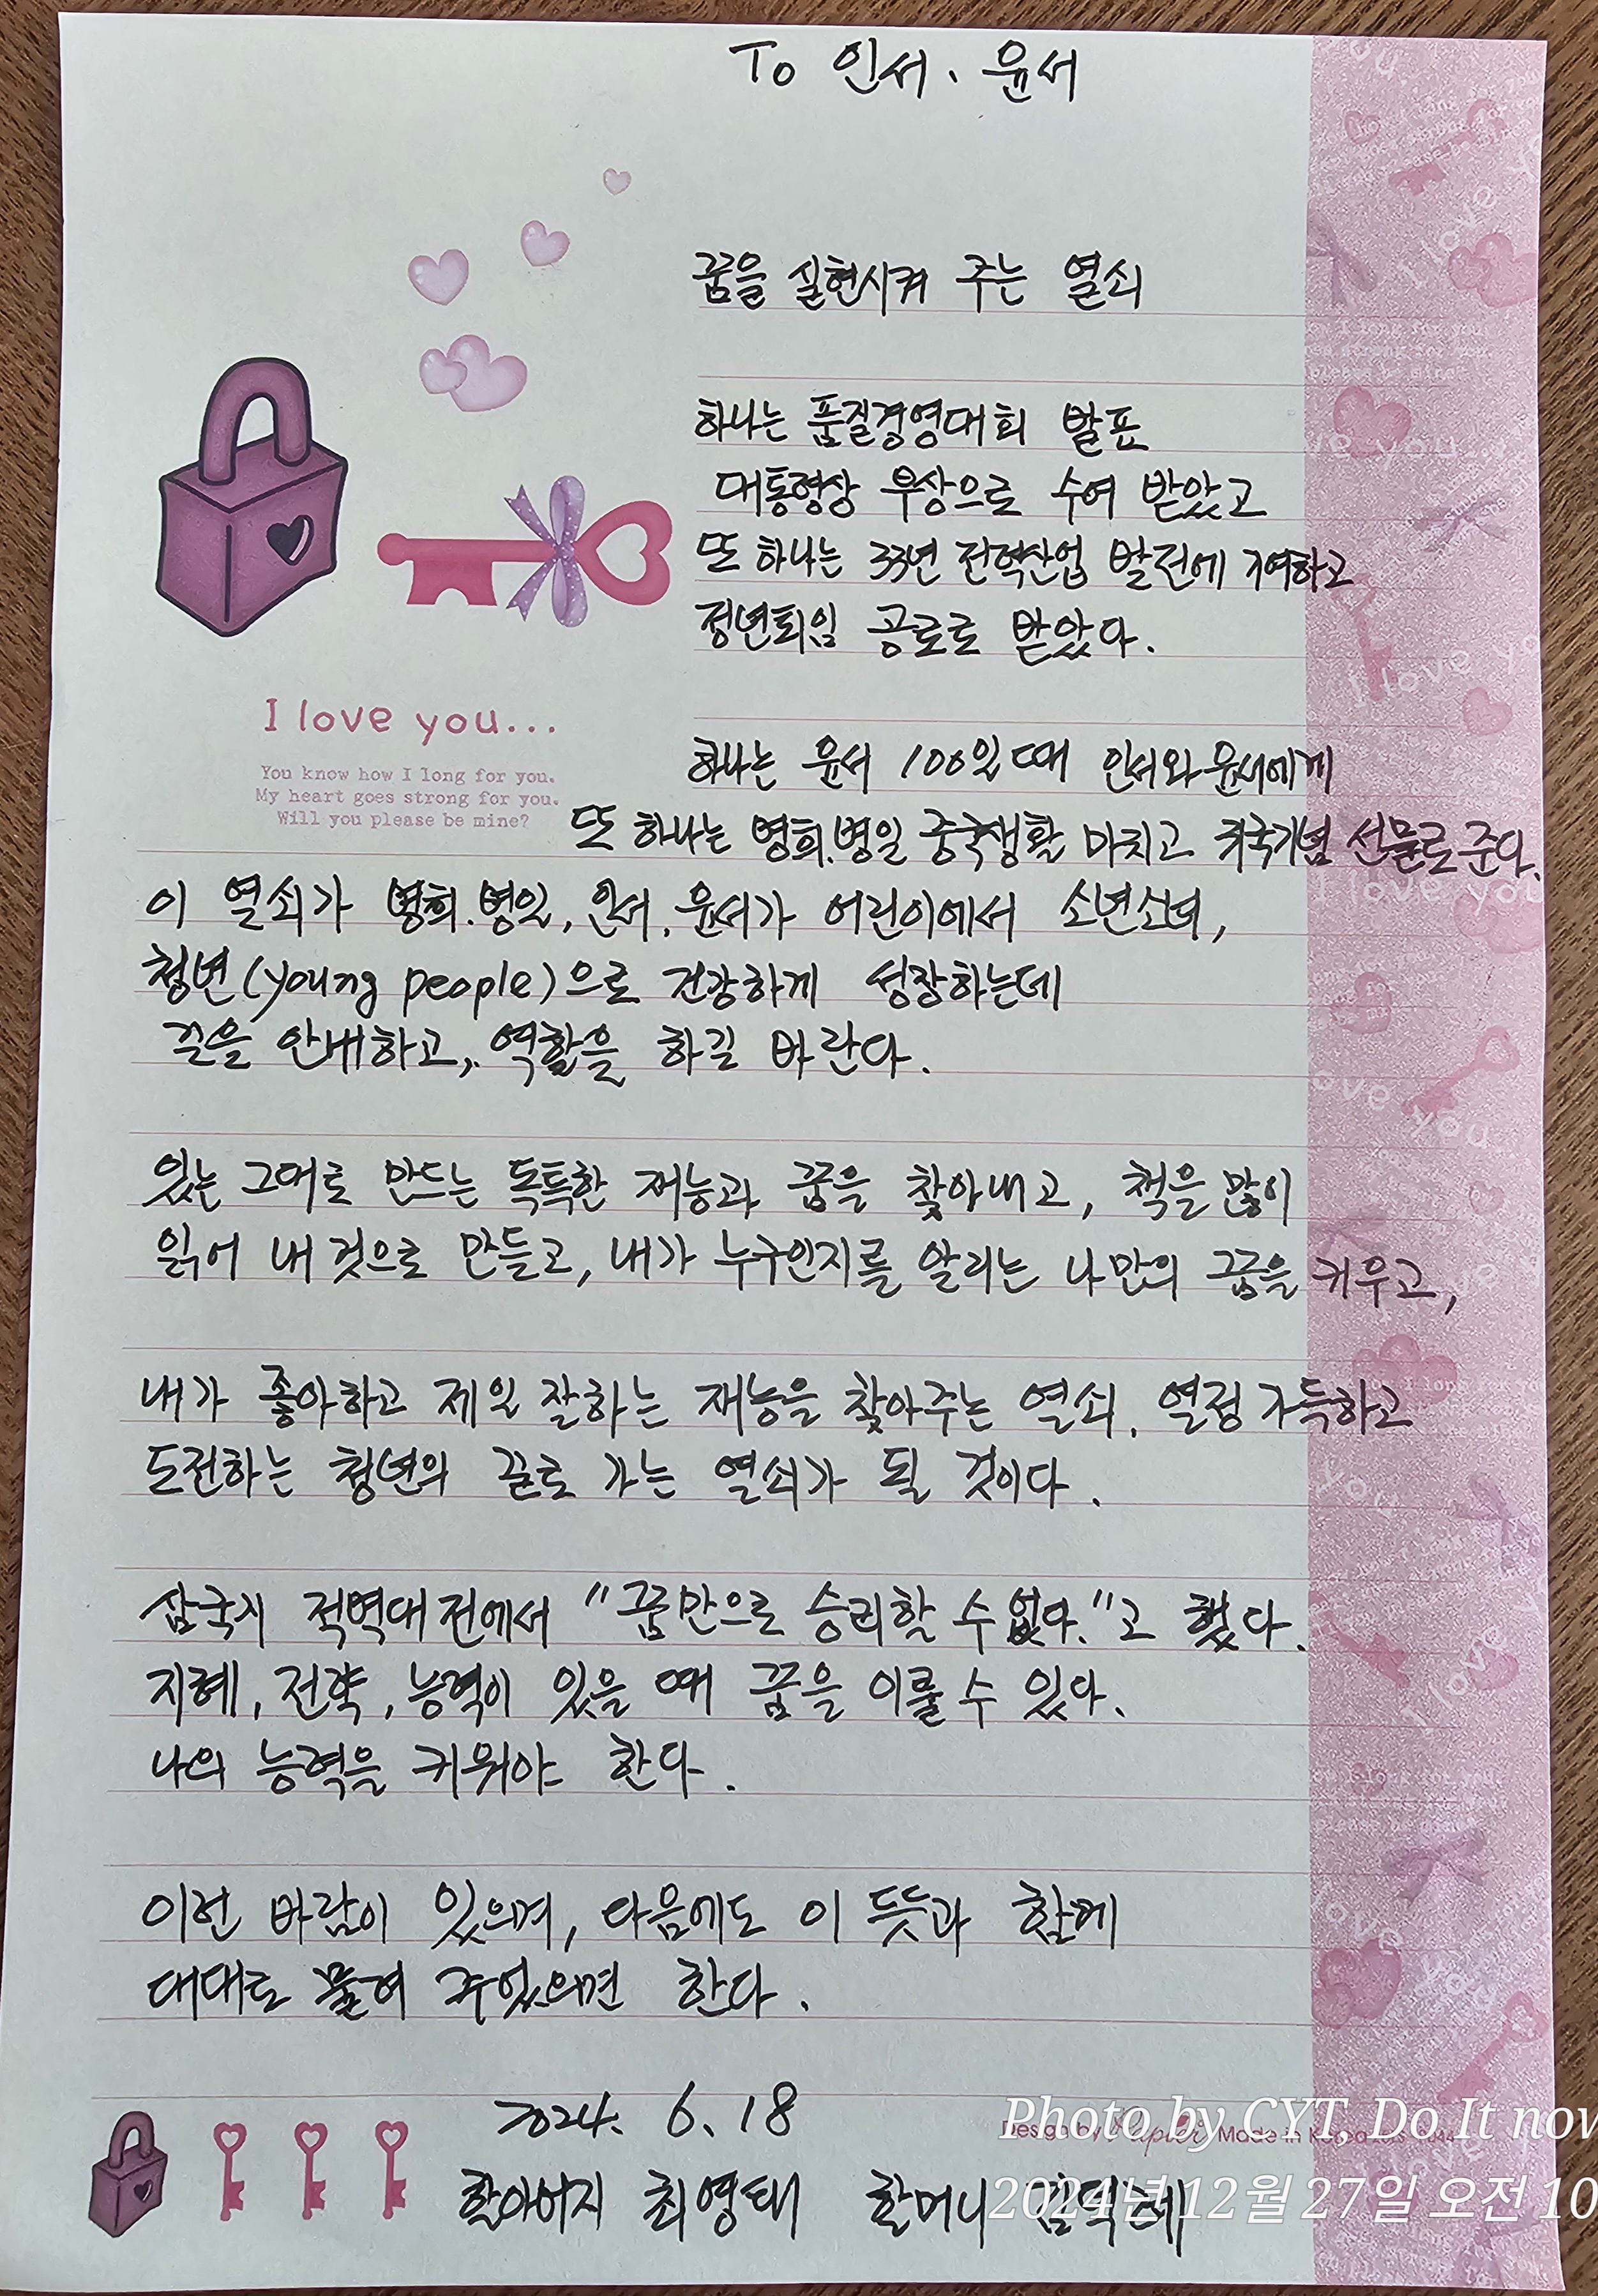 To 인서. 윤서
꿈을 실현시켜 주는 열쇠
하나는 품질경영대회 발표
대통령상 부상으로 수여 받았고
또 하나는 33년 전력산업 발전에 기여하고
정년퇴임 공로로 받았다.
I love you...
You know how I long for you.
My heart goes strong for you.
Will you please be mine?
하나는 윤서 100일 때 인서와 윤서에게
또 하나는 병희.병일 중국생활 마치고 귀국기념 선물로 준다.
이 열쇠가 병희.병일, 인서, 윤서가 어린이에서 소년소녀,
청년(young people)으로 건강하게 성장하는데
길을 안내하고, 역할을 하길 바란다.
있는 그대로 만드는 독특한 재능과 꿈을 찾아내고, 책을 많이
읽어 내 것으로 만들고, 내가 누구인지를 알리는 나만의 꿈을 키우고,
내가 좋아하고 제일 잘하는 재능을 찾아주는 열쇠. 열정 가득하고
도전하는 청년의 길로 가는 열쇠가 될 것이다.
삼국지 적벽대전에서 "꿈만으로 승리할 수 없다."고 했다.
지혜, 전략, 능력이 있을 때 꿈을 이룰 수 있다.
나의 능력을 키워야 한다.
이런 바람이 있으며, 다음에도 이 뜻과 함께
대대로 물려 주었으면 한다.
2024. 6. 18
할아버지 최영태 할머니
Design by Made in Korea
Photo by CYT, Do It now
2024년 12월 27일 오전 10